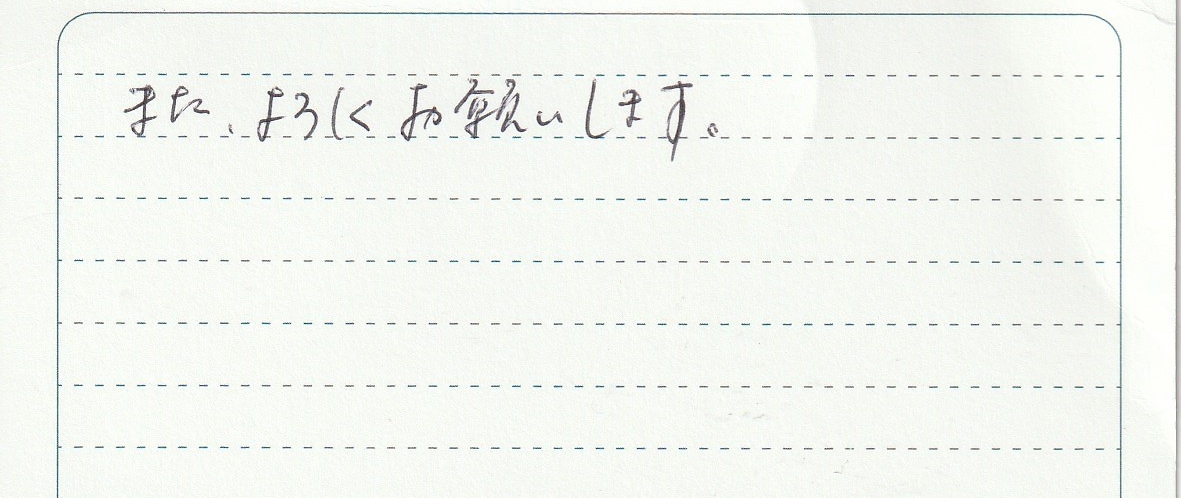 また、よろしくお願いします。